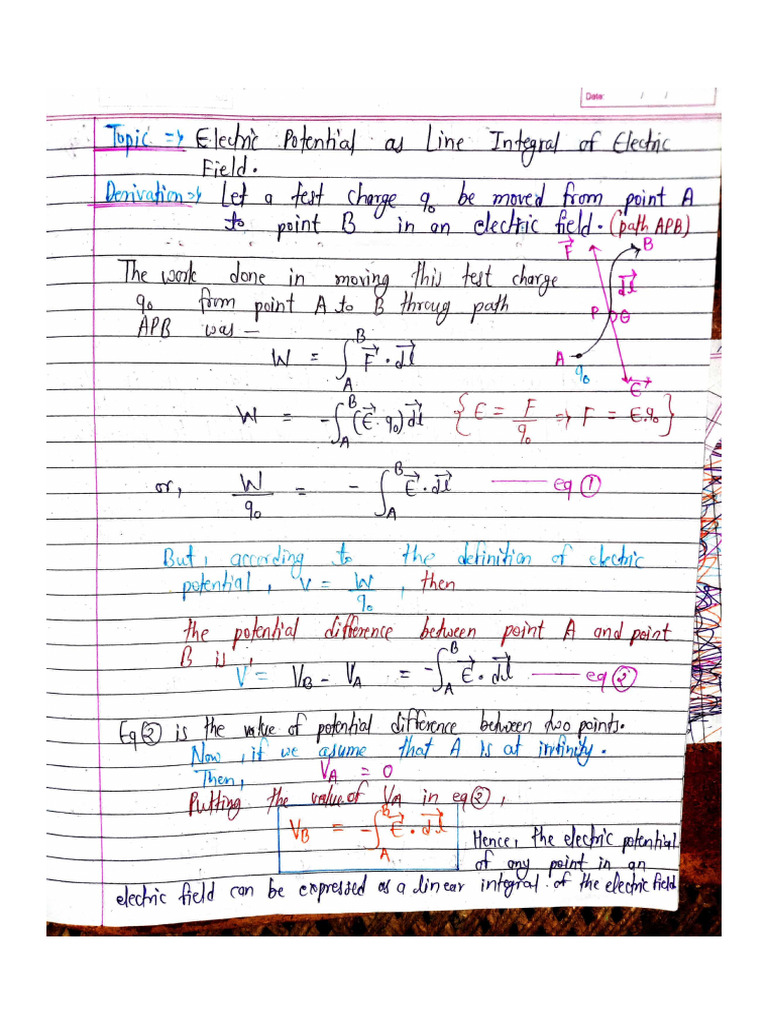 Date: / /
Topic => Electric Potential as Line Integral of Electric
Field.
Derivation => Let a test charge q₀ be moved from point A
to point B in an electric field. (path APB)
F⃗ B
The work done in moving this test charge
dl⃗
q₀ from point A to B throug path
P θ
APB was —
A
q₀
E⃗
W = ∫_A^B F⃗ . dl⃗
W = -∫_A^B (E⃗. q₀) dl⃗ {E = F/q₀ => F = E.q₀}
or, W/q₀ = - ∫_A^B E⃗ . dl⃗ —— eq ①
But, according to the definition of electric
potential, V = W/q₀, then
the potential difference between point A and point
B is,
V = V_B - V_A = -∫_A^B E⃗ . dl⃗ —— eq ②
Eq ② is the value of potential difference between two points.
Now, if we asume that A is at infinity.
Then, V_A = 0
Putting the value of V_A in eq ②,
V_B = -∫_A^B E⃗ . dl⃗
Hence, the electric potential
of any point in an
electric field can be expressed as a linear integral of the electric field